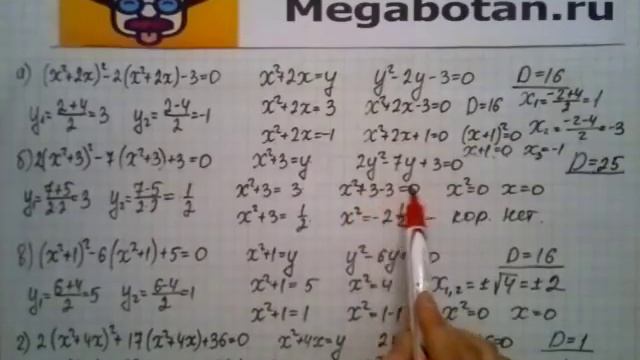 Megabotan.ru
а) (x²+2x)²-2(x²+2x)-3=0 x²+2x=y y²-2y-3=0 D=16
y₁=(2+4)/2=3 y₂=(2-4)/2=-1 x²+2x=3 x²+2x-3=0 D=16 x₁=(-2+4)/2=1
x²+2x=-1 x²+2x+1=0 (x+1)²=0 x₂=(-2-4)/2=-3
x+1=0 x₃=-1
б) 2(x²+3)²-7(x²+3)+3=0 x²+3=y 2y²-7y+3=0 D=25
y₁=(7+5)/(2·2)=3 y₂=(7-5)/(2·2)=1/2 x²+3=3 x²+3-3=0 x²=0 x=0
x²+3=1/2 x²=-2 кор. нет.
в) (x²+1)²-6(x²+1)+5=0 x²+1=y y²-6y 0 D=16
y₁=(6+4)/2=5 y₂=(6-4)/2=1 x²+1=5 x²=4 x₁,₂=±√4=±2
x²+1=1 x²=1-1 x²=0 x=0
г) 2(x²+4x)²+17(x²+4x)+36=0 x²+4x=y =0 D=1